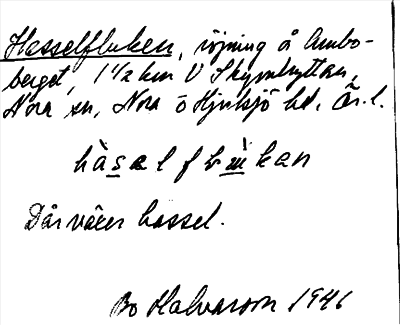 Hasselfluken, röjning å Ambo-
berget, 1 1/2 km V Skymhyttan,
Nora sn, Nora o Hjulsjö hd, Ör. l.
Där växer hassel.
Bo Halvarson 1946